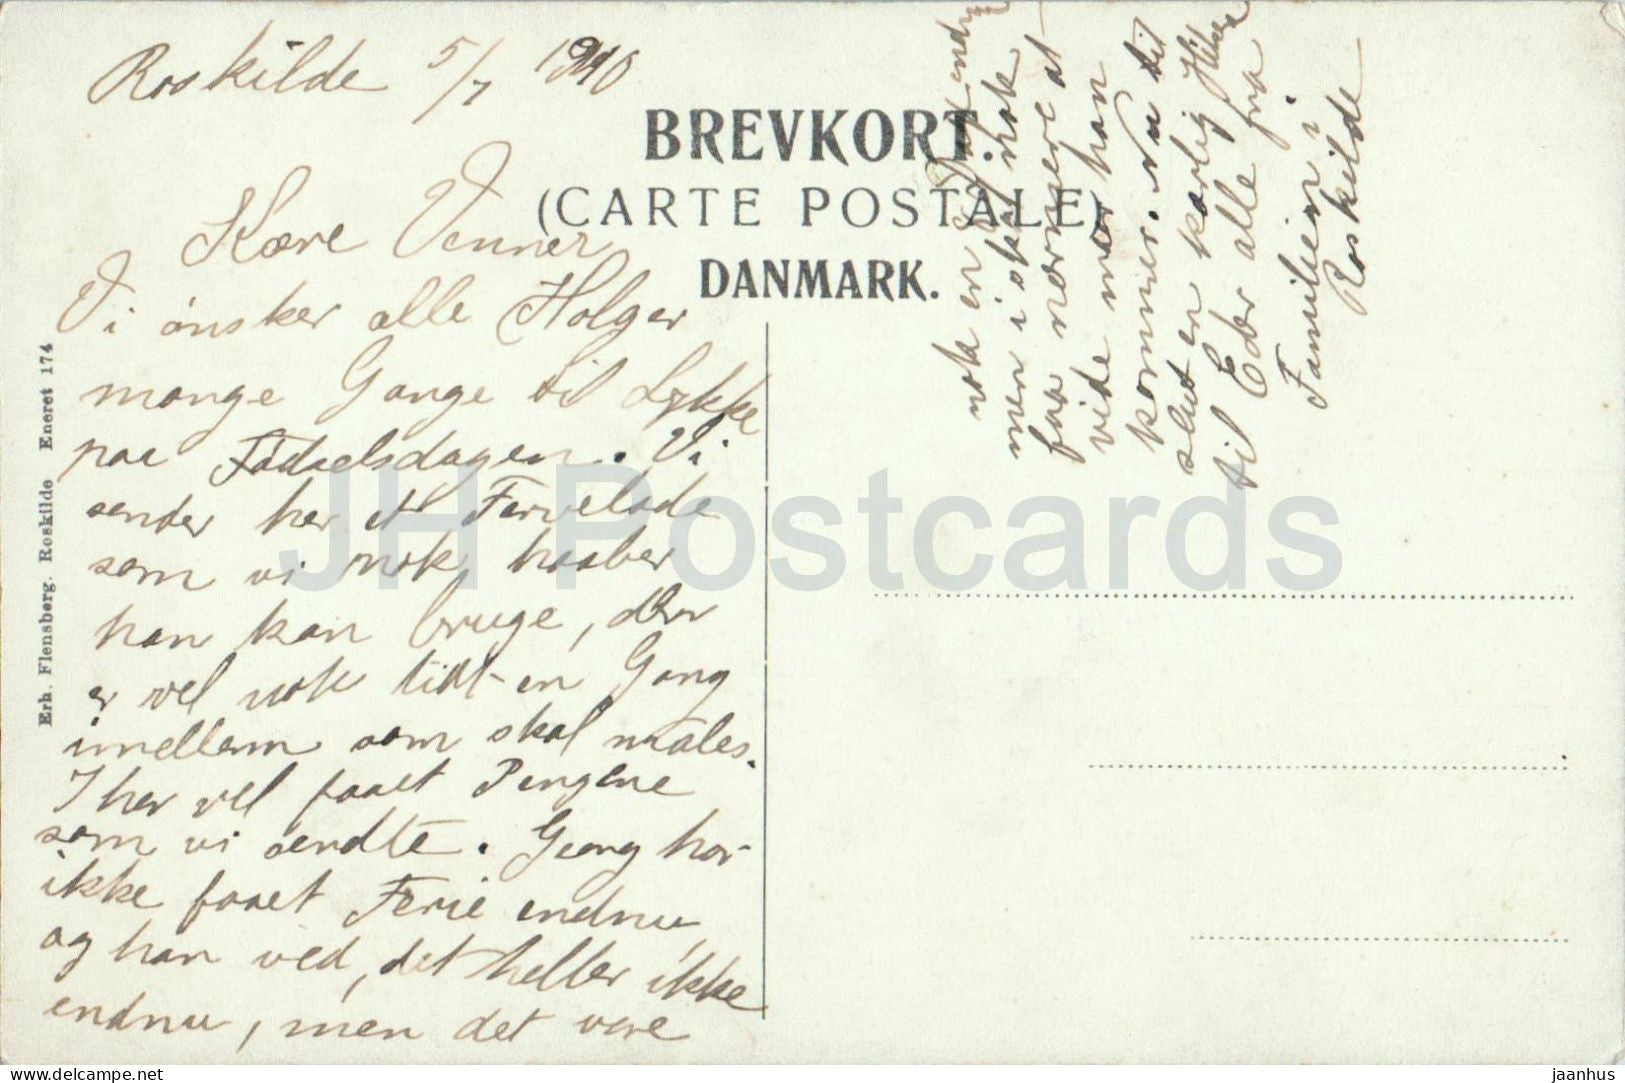 Roskilde 5/7 1910
BREVKORT
(CARTE POSTALE)
DANMARK.
Kære Venner
Vi ønsker alle Holger
mange Gange til Lykke
paa Fødselsdagen. Vi
sender her et Farvelade
som vi nok haaber
han kan bruge, der
er vel nok lidt en Gang
imellem som skal males.
I har vel faaet Pengene
som vi sendte. Georg har
ikke faaet Ferie endnu,
og han ved, det heller ikke
endnu, men det vare
nok en endnu
men i skal nok
faa nærmere at
vide naar han
kommer. Nu til
slut en kærlig Hilsen
til Eder alle fra
Familien i
Roskilde
Erh. Flensborg. Roskilde Eneret 174
JH Postcards
www.delcampe.net
jaanhus